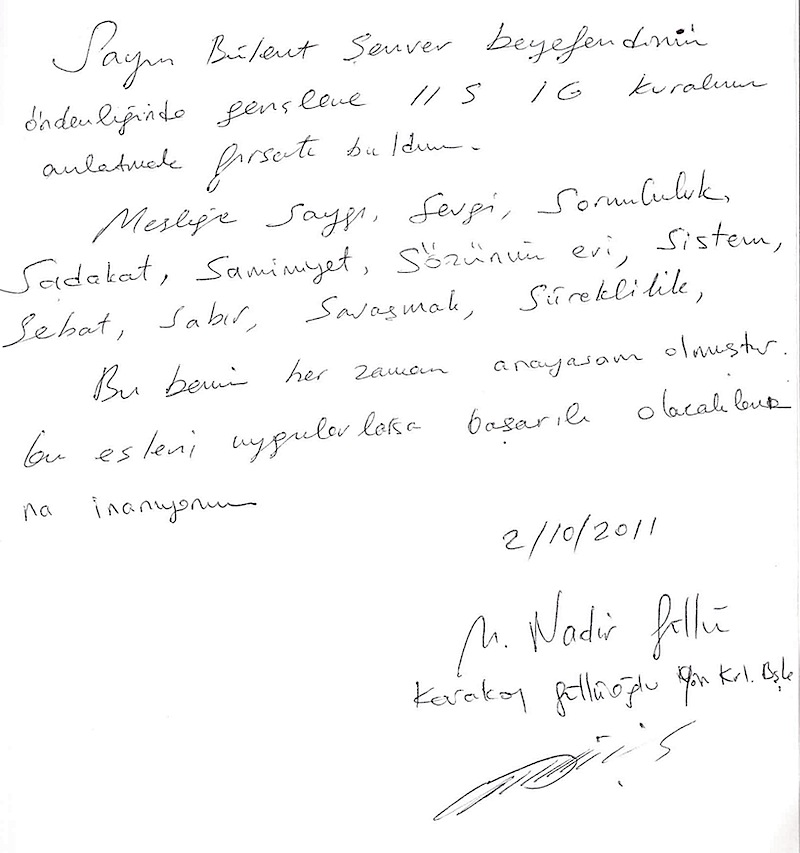 Sayın Bülent Şenver beyefendinin
önderliğinde gençlere 11 S 1G kuralını
anlatmak fırsatı buldum.
Mesleğe saygı, Sevgi, Sorumluluk,
Sadakat, Samimiyet, Sözünün eri, Sistem,
Sebat, Sabır, Savaşmak, Süreklilik,
Bu benim her zaman anayasam olmuştur.
bu esleri uygularlarsa başarılı olacakları
na inanıyorum
2/10/2011
M. Nadir Güllü
Karaköy Güllüoğlu Yön Krl. Bşk